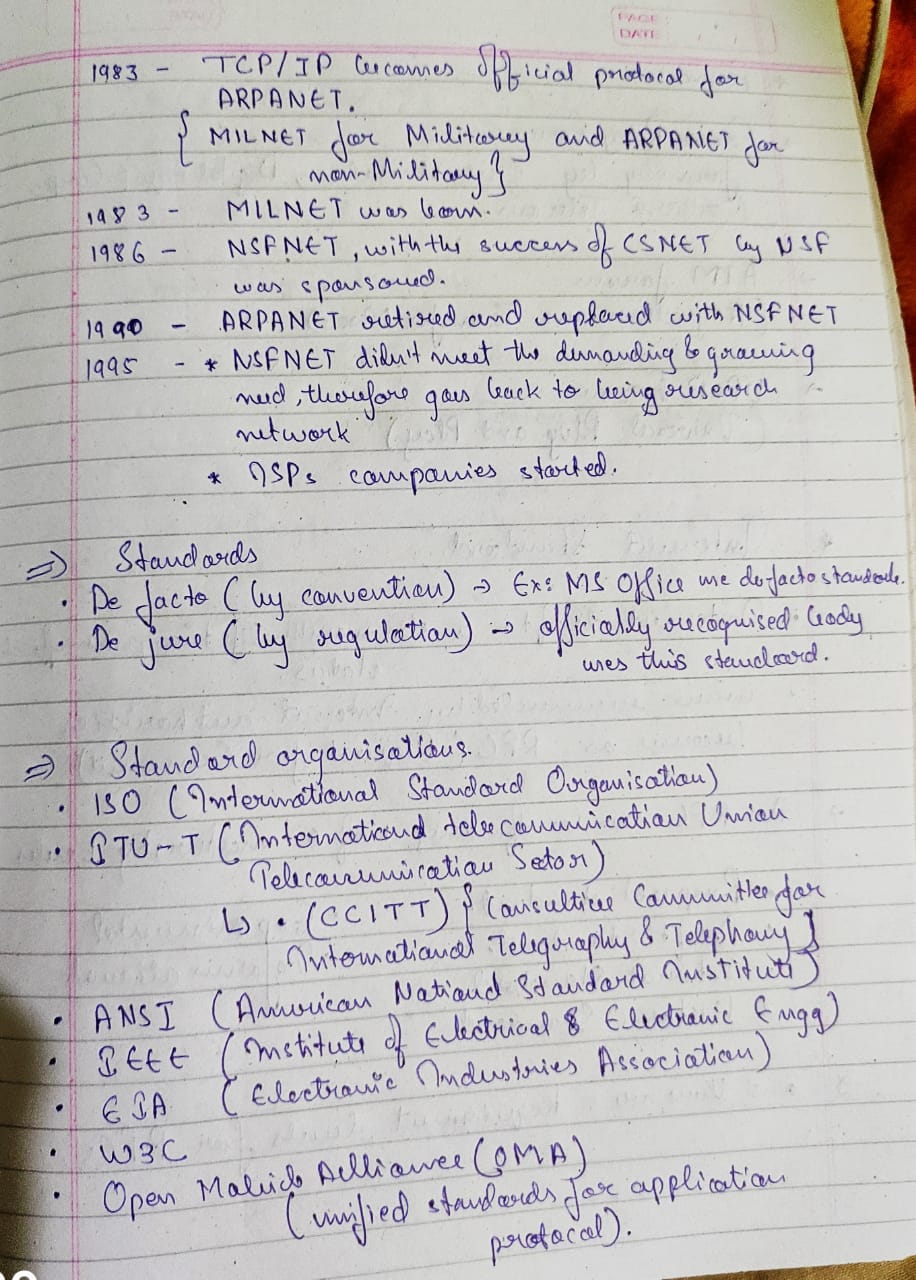 PAGE :
DATE :
1983 - TCP/IP becomes Official protocol for
ARPANET.
{ MILNET for Military and ARPANET for
non-Military}
1983 - MILNET was born.
1986 - NSFNET, with the success of CSNET by NSF
was sponsored.
1990 - ARPANET retired and replaced with NSFNET
1995 - * NSFNET didn't meet the demanding & growing
need, therefore goes back to being research
network
* ISPs companies started.
⇒ Standards
• De facto (by convention) → Ex: MS Office use de-facto standards.
• De jure (by regulation) → officially recognised body
uses this standard.
⇒ Standard organisations.
• ISO (International Standard Organisation)
• ITU-T (International telecommunication Union
Telecommunication Setor)
↳ • (CCITT) { Consultive Committee for
International Telegraphy & Telephony }
• ANSI (American National Standard Institute)
• IEEE (Institute of Electrical & Electronic Engg)
• EIA (Electronic Industries Association)
• W3C
• Open Mobile Alliance (OMA)
(unified standards for application
protocol).